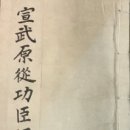 宣武原從功臣